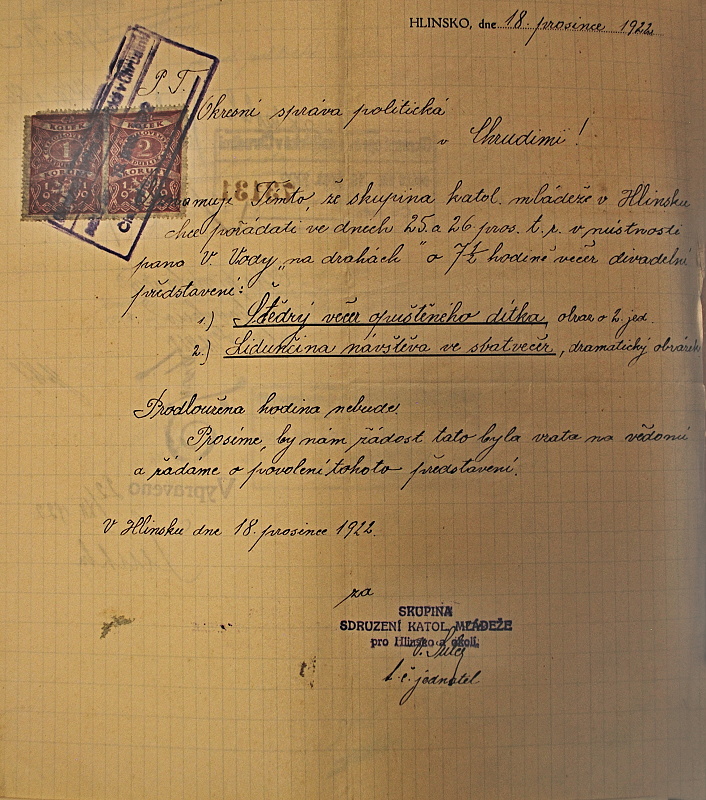 HLINSKO, dne 18. prosince 1922.
P. T.
Okresní správa politická
v Chrudimi!
KOLEK KOLEK
1 2
KORUNA KORUNY
1919 1919
Oznamuji Tímto, že skupina katol. mládeže v Hlinsku
chce pořádati ve dnech 25. a 26 pros. t. r. v místnosti
pana V. Vody „na drahách" o 7½ hodině večer divadelní
představení:
1.) Štědrý večer opuštěného dítka, obraz o 2. jed.
2.) Lidunčina návštěva ve svatvečer, dramatický obrázek
Prodloužena hodina nebude.
Prosíme, by nám žádost tato byla vzata na vědomí
a žádáme o povolení tohoto představení.
V Hlinsku dne 18. prosince 1922.
za
SKUPINA
SDRUZENÍ KATOL. MLÁDEŽE
pro Hlinsko a okolí.
t. č. jednatel
Vypraveno